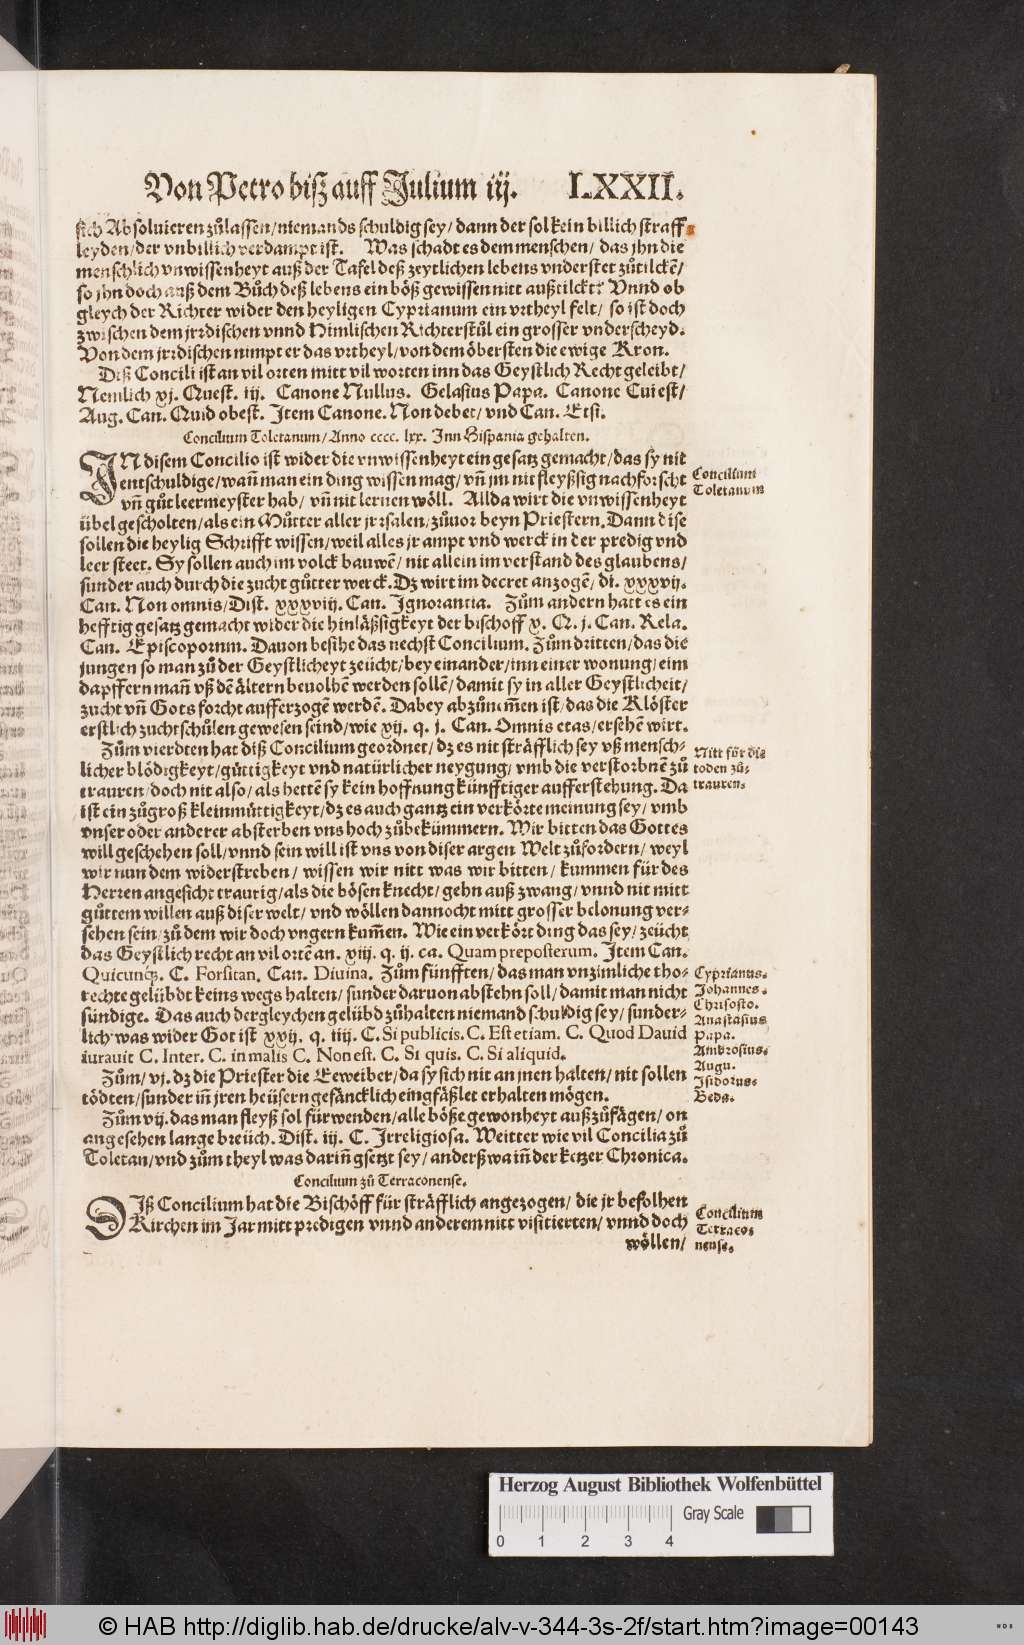 Von Petro biß auff Julium iij. LXXII.
sich Absoluieren zůlassen/niemands schuldig sey/dann der sol kein billich straff
leyden/der vnbillich verdampt ist. Was schadt es dem menschen/das jhn die
menschlich vnwissenheyt auß der Tafel deß zeytlichen lebens vnderstet zůtilckē/
so jhn doch auß dem Bůch deß lebens ein böß gewissen nitt außtilckt? Vnnd ob
gleych der Richter wider den heyligen Cyprianum ein vrtheyl felt/ so ist doch
zwischen dem jrrdischen vnnd Himlischen Richterstůl ein grosser vnderscheyd.
Von dem jrrdischen nimpt er das vrtheyl/von dem öbersten die ewige Kron.
Diß Concili ist an vil orten mitt vil worten inn das Geystlich Recht geleibt/
Nemlich xj. Quest. iij. Canone Nullus. Gelasius Papa. Canone Cui est/
Aug. Can. Quid obest. Item Canone. Non debet/ vnd Can. Etsi.
Concilium Toletanum/ Anno cccc. lxx. Inn Hispania gehalten.
IN disem Concilio ist wider die vnwissenheyt ein gesatz gemacht/das sy nit
entschuldige/wañ man ein ding wissen mag/ vñ jm nit fleyßsig nachforscht
vñ gůt leermeyster hab/ vñ nit lernen wöll. Allda wirt die vnwissenheyt
übel gescholten/als ein Můtter aller jrrsalen/zůuor beyn Priestern. Dann dise
sollen die heylig Schrifft wissen/weil alles jr ampt vnd werck in der predig vnd
leer steet. Sy sollen auch im volck bauwē/ nit allein im verstand des glaubens/
sunder auch durch die zucht gůtter werck. Dz wirt im decret anzogē/ di. xxxvij.
Can. Non omnis/Dist. xxxviij. Can. Ignorantia. Zům andern hatt es ein
hefftig gesatz gemacht wider die hinläßsigkeyt der bischoff x. Q. j. Can. Rela.
Can. Episcoporum. Dauon besihe das nechst Concilium. Zům dritten/das die
jungen so man zů der Geystlicheyt zeücht/bey einander/inn einer wonung/eim
dapffern mañ vß dē ältern beuolhē werden sollē/damit sy in aller Geystlicheit/
zucht vñ Gots forcht aufferzogē werdē. Dabey abzůnem̄en ist/das die Klöster
erstlich zuchtschůlen gewesen seind/wie xij. q. j. Can. Omnis etas/ersehē wirt.
Zům vierdten hat diß Concilium geordnet/ dz es nit sträfflich sey vß mensch-
licher blödigkeyt/gůttigkeyt vnd natürlicher neygung/vmb die verstorbnē zů
trauren/doch nit also/als hettē sy kein hoffnung künfftiger aufferstehung. Da
ist ein zůgroß kleinmüttigkeyt/dz es auch gantz ein verkörte meinung sey/ vmb
vnser oder anderer absterben vns hoch zůbekümmern. Wir bitten das Gottes
will geschehen soll/vnnd sein will ist vns von diser argen Welt zůfordern/weyl
wir nun dem widerstreben/ wissen wir nitt was wir bitten/ kummen für des
Herren angesicht traurig/als die bösen knecht/ gehn auß zwang/ vnnd nit mitt
gůttem willen auß diser welt/ vnd wöllen dannocht mitt grosser belonung ver-
sehen sein/zů dem wir doch vngern kum̄en. Wie ein verkört ding das sey/zeücht
das Geystlich recht an vil ortē an. xiij. q. ij. ca. Quam preposterum. Item Can.
Quicunq;. C. Forsitan. Can. Diuina. Zům fünfften/das man vnzimliche tho-
rechte gelübdt keins wegs halten/sunder daruon abstehn soll/damit man nicht
sündige. Das auch dergleychen gelübd zůhalten niemand schuldig sey/sunder-
lich was wider Got ist xxij. q. iiij. C. Si publicis. C. Est etiam. C. Quod Dauid
iurauit C. Inter. C. in malis C. Non est. C. Si quis. C. Si aliquid.
Zům/ vj. dz die Priester die Eeweiber/da sy sich nit an jnen halten/nit sollen
tödten/sunder iñ jren heüsern gefäncklich eingfäßlet erhalten mögen.
Zům vij. das man fleyß sol fürwenden/alle böße gewonheyt außzůfägen/on
angesehen lange breüch. Dist. iij. C. Irreligiosa. Weitter wie vil Concilia zů
Toletan/vnd zům theyl was dariñ gsetzt sey/anderßwa iñ der ketzer Chronica.
Concilium zů Terraconense.
DIß Concilium hat die Bischöff für sträfflich angezogen/ die jr befolhen
Kirchen im Jar mitt predigen vnnd anderem nitt visitierten/ vnnd doch
wöllen/
Concilium
Toletanum
Nitt für die
toden zů-
trauren.
Cyprianus.
Johannes.
Chrisosto.
Anastasius
Papa.
Ambrosius.
Augu.
Isidorus.
Beda.
Concilium
Terraco-
nense.
Herzog August Bibliothek Wolfenbüttel
Gray Scale
0 1 2 3 4
© HAB http://diglib.hab.de/drucke/alv-v-344-3s-2f/start.htm?image=00143